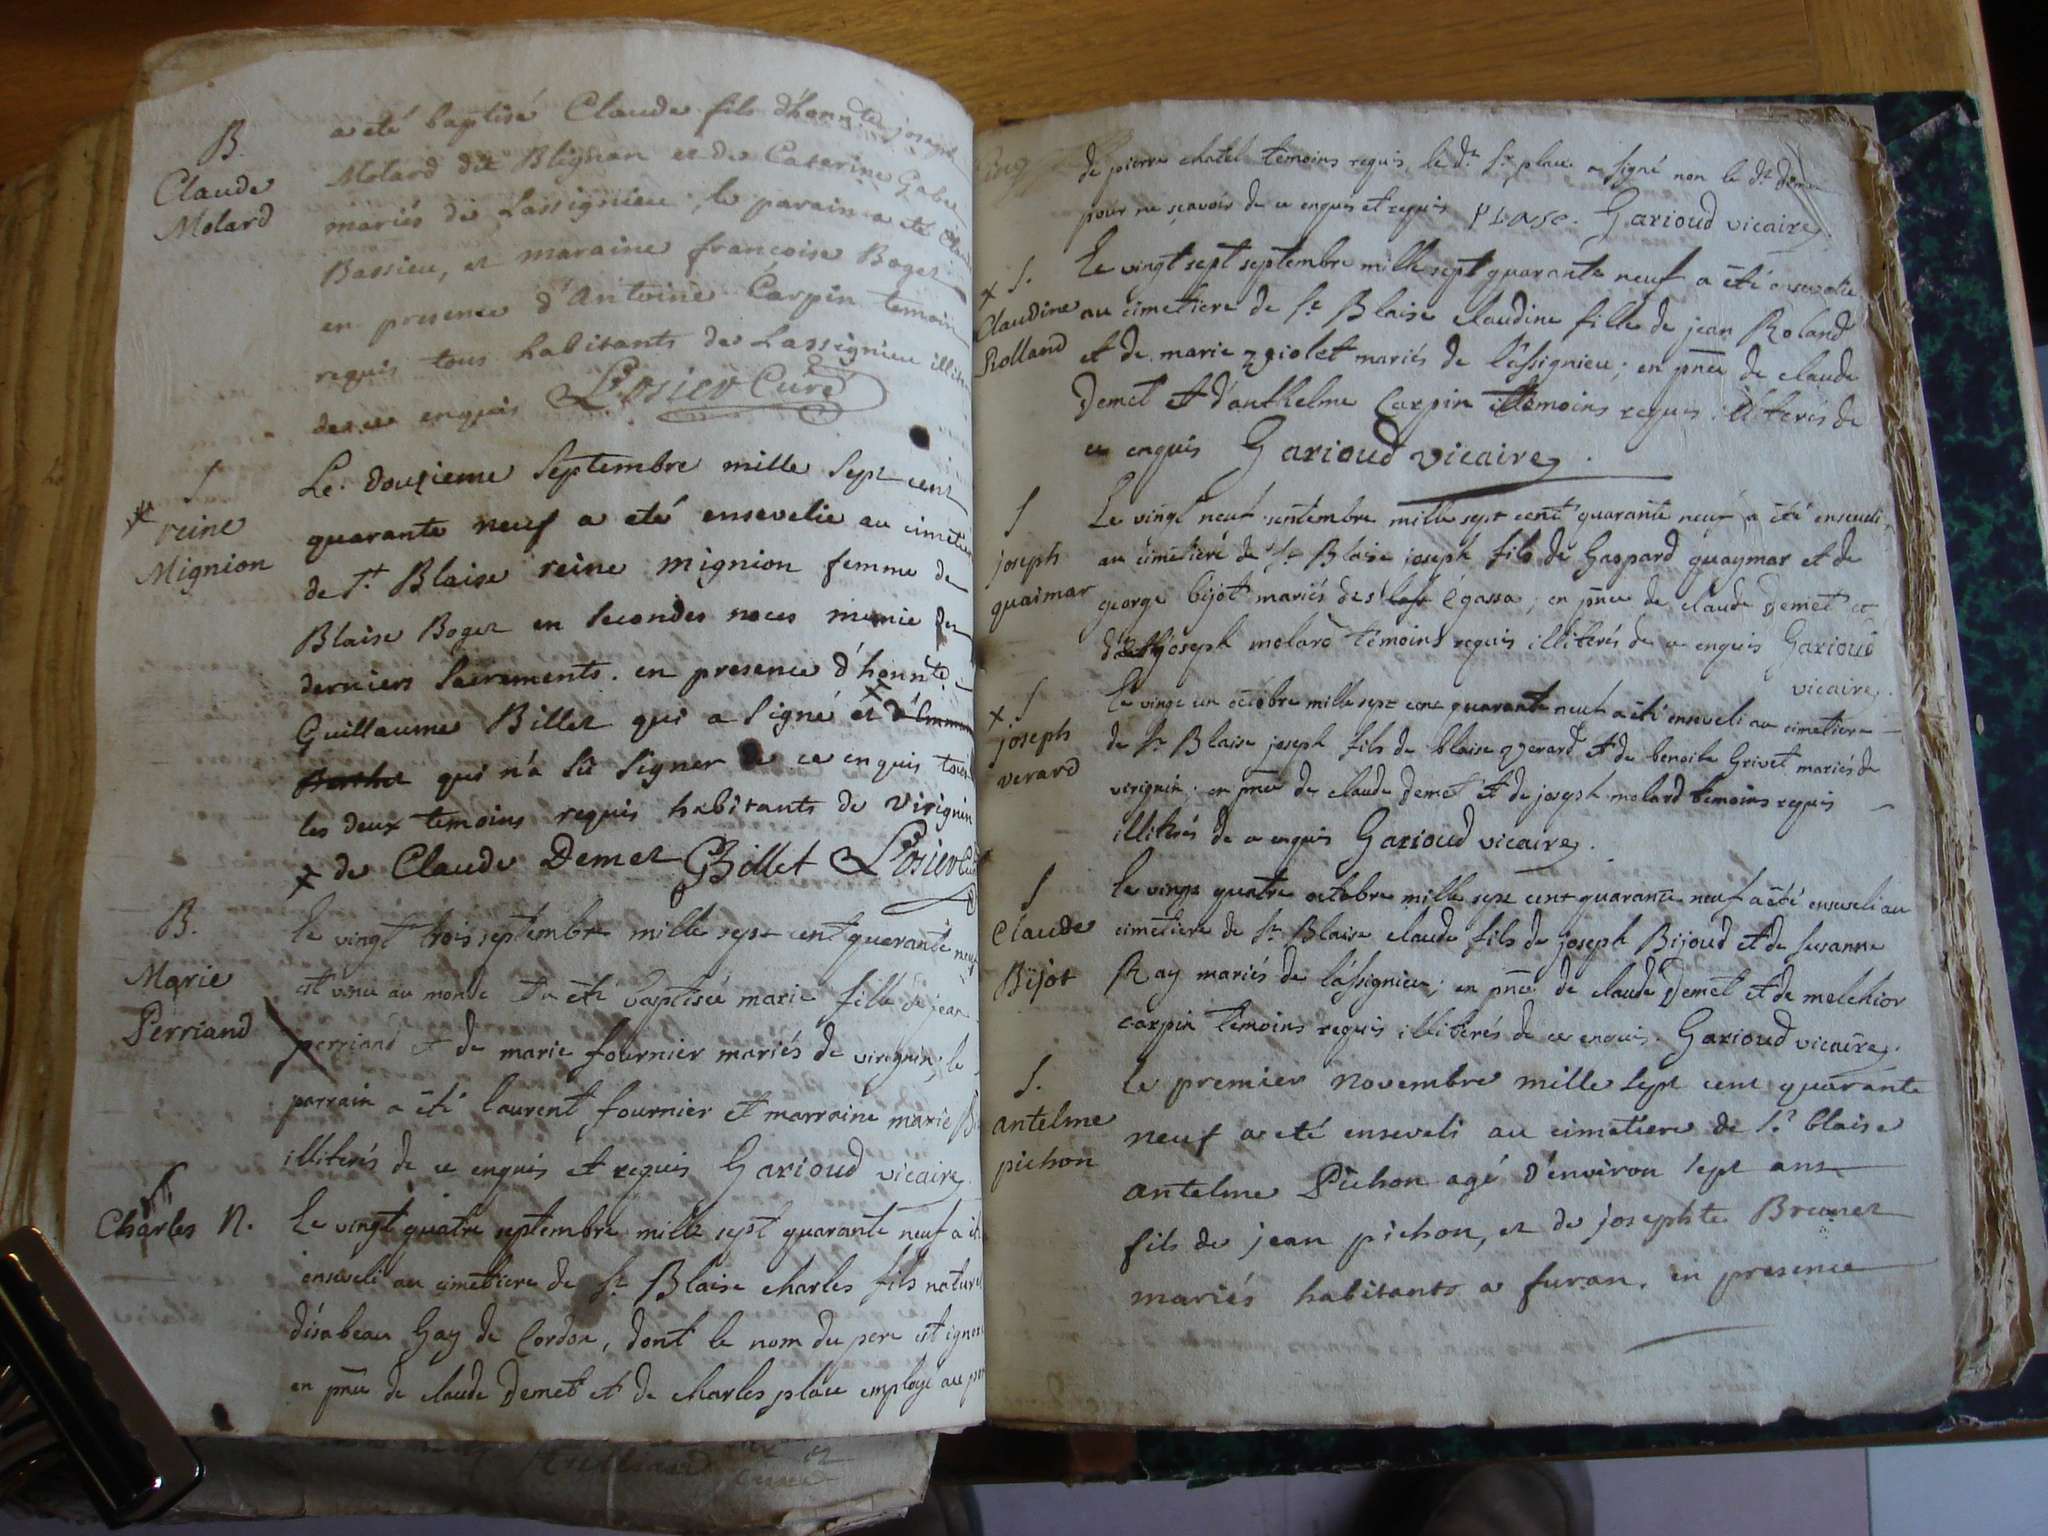 B.
Claude
Molard
a eté baptisé Claude fils d'honnte joseph
Molard dit Blignan et de Caterine Gabet
mariés de Lassignieu, le parain a eté Claude
Bassieu, et maraine françoise Boget
en presence d'Antoine Carpin temoin
requis tous habitants de Lassignieu
de ce enquis Curé
S
* reine
Mignion
Le douzieme Septembre mille Sept cent
quarante neuf a eté ensevelie au
de St Blaise reine mignion femme de
Blaise Boget en secondes noces munie des
derniers Sacrements. en presence d'honnte
Guillaume Billet qui a signé et
qui n'a sû signer de ce enquis tous
les deux temoins requis habitants de virignin
x de Claude Demet GBillet
B.
Marie
Perriand
le vingt trois septembre mille sept cent quarante neuf
est venu au monde et a été baptisée marie fille de jean
perriand et de marie fournier mariés de virignin; le
parrain a été laurent fournier et marraine marie
illiterés de ce enquis et requis Garioud vicaire
S
Charles N.
Le vingt quatre septembre mille sept quarante neuf a
enseveli au cimetiere de St Blaise charles fils
d'isabeau Gay de Cordon, dont le nom du pere est
en pnce de claude Demet et de charles place employé au
de pierre chatel temoins requis, le dt Sr place a signé non le dt Demet
pour ne sçavoir de ce enquis et requis PLasse. Garioud vicaire
x S.
Claudine
Rolland
Le vingt sept septembre mille sept quarante neuf a été ensevelie
au cimetiere de St Blaise claudine fille de jean Roland
et de marie giolet mariés de l'assignieu; en pnce de claude
Demet et d'anthelme Carpin temoins requis illiterés de
ce enquis Garioud vicaire.
S
joseph
quaimar
Le vingt neuf septembre mille sept cent quarante neuf a été enseveli
au cimetiere de St Blaise joseph fils de Gaspard quaymar et de
george bijot mariés des égassa; en pnce de claude Demet et
joseph molard temoins requis illiterés de ce enquis Garioud
vicaire.
x S
joseph
verard
Le vingt un octobre mille sept cent quarante neuf a été enseveli au cimetiere
de St Blaise joseph fils de blaise verard et de benoite Grivet mariés de
virignin; en pnce de claude Demet et de joseph molard temoins requis
illiterés de ce enquis Garioud vicaire.
S
Claude
Bijot
le vingt quatre octobre mille sept cent quarante neuf a été enseveli au
cimetiere de St Blaise claude fils de joseph Bijoud et de susanne
Ray mariés de l'assignieu; en pnce de claude Demet et de melchior
carpin temoins requis illiterés de ce enquis. Garioud vicaire.
S.
antelme
pichon
Le premier novembre mille sept cent quarante
neuf a eté enseveli au cimetiere de St blaise
antelme Pichon agé d'environ sept ans
fils de jean pichon, et de josephte Brunet
mariés habitants a furan. en presence